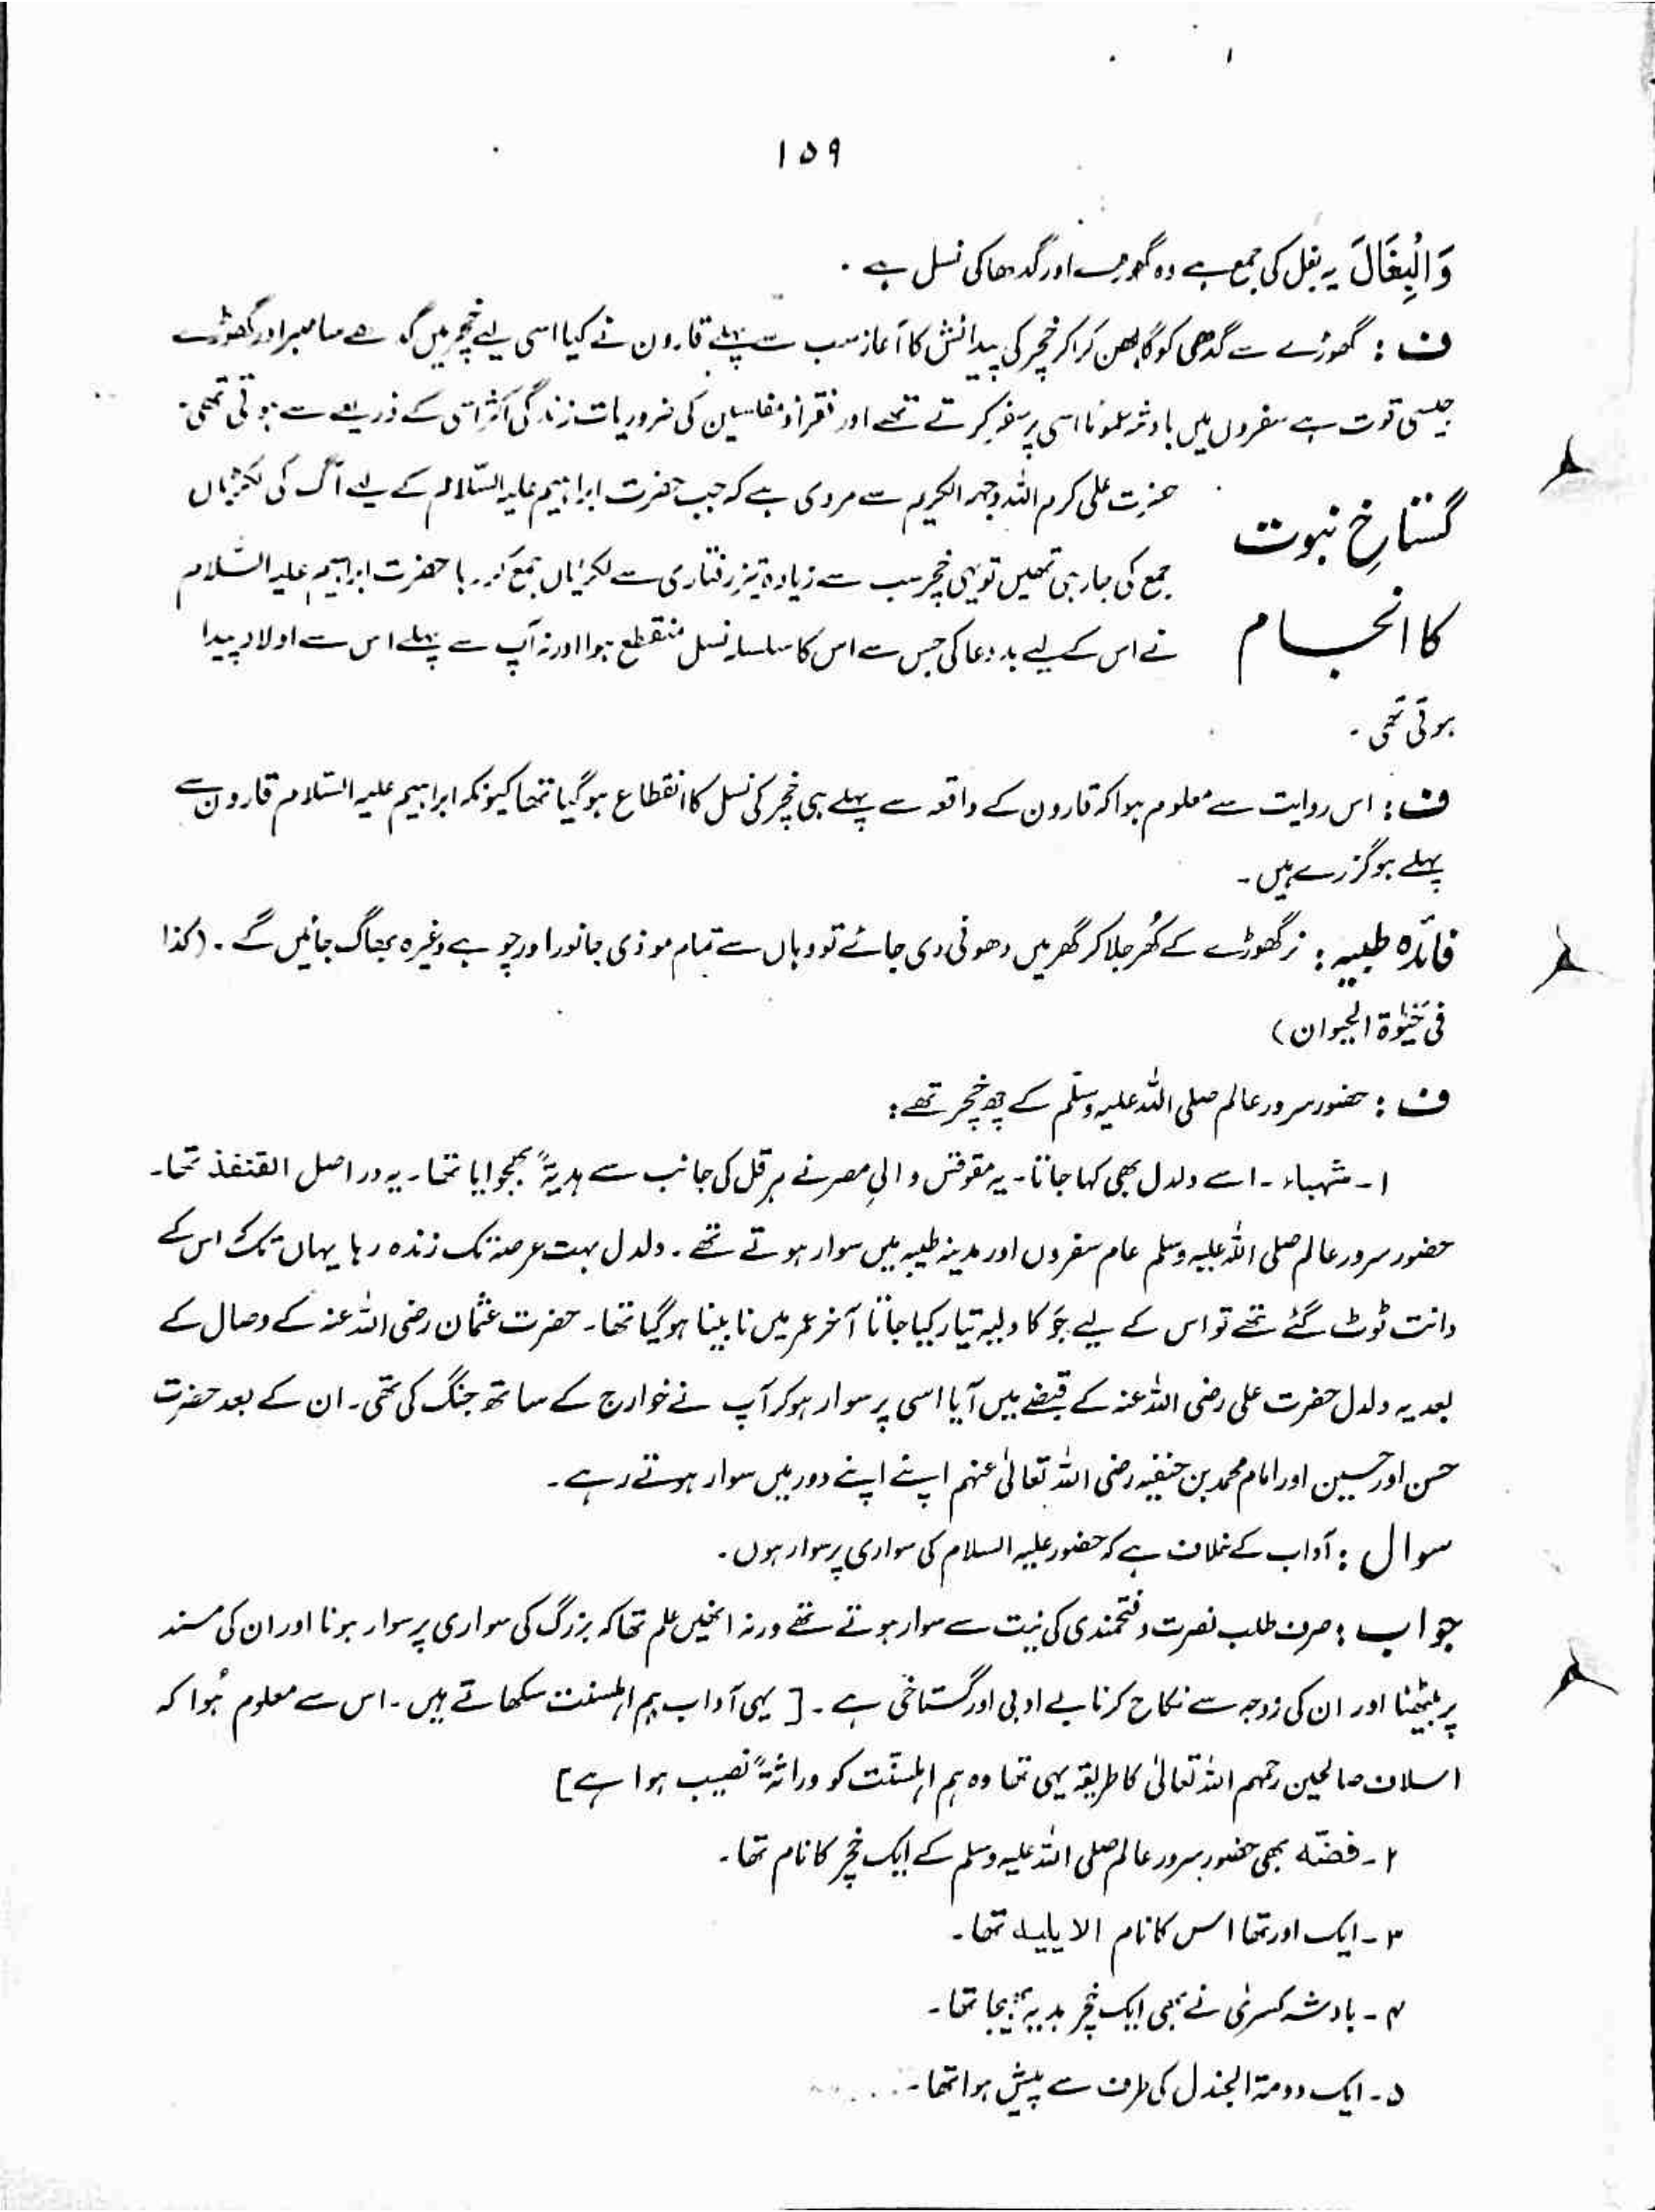 ۱۵۹
وَالْبِغَالَ یہ بغل کی جمع ہے وہ گھوڑے اور گدھا کی نسل ہے ۔
ف : گھوڑے سے گدھی کو گابھن کرا کر خچر کی پیدائش کا آغاز سب سے پہلے قارون نے کیا اسی لیے خچر میں گدھے سا صبر اور گھوڑے
جیسی قوت ہے سفروں میں بادشہ عموماً اسی پر سفر کرتے تھے اور فقراء و مفلسین کی ضروریات زندگی اکثر اسی کے ذریعے سے ہوتی تھی۔
گستاخِ نبوت
کا انجام
حضرت علی کرم اللہ وجہہ الکریم سے مروی ہے کہ جب حضرت ابراہیم علیہ السّلام کے لیے آگ کی لکڑیاں
جمع کی جا رہی تھیں تو یہی خچر سب سے زیادہ تیز رفتاری سے لکڑیاں جمع کر رہا حضرت ابراہیم علیہ السّلام
نے اس کے لیے بددعا کی جس سے اس کا سلسلہ نسل منقطع ہوا ورنہ آپ سے پہلے اس سے اولاد پیدا
ہوتی تھی ۔
ف : اس روایت سے معلوم ہوا کہ قارون کے واقعہ سے پہلے ہی خچر کی نسل کا انقطاع ہوگیا تھا کیونکہ ابراہیم علیہ السّلام قارون سے
پہلے ہو گزرے ہیں ۔
فائدہ طبیہ : نر گھوڑے کے کُھر جلا کر گھر میں دھونی دی جائے تو وہاں سے تمام موذی جانور اور چوہے وغیرہ بھاگ جائیں گے ۔ (کذا
فی حیٰوۃ الحیوان)
ف : حضور سرور عالم صلی اللہ علیہ وسلّم کے چھ خچر تھے :
۱ ۔ شہباء ۔ اسے دلدل بھی کہا جاتا ۔ یہ مقوقس والیِ مصر نے ہرقل کی جانب سے ہدیۃً بھجوایا تھا ۔ یہ دراصل القنفذ تھا ۔
حضور سرور عالم صلی اللہ علیہ وسلم عام سفروں اور مدینہ طیبہ میں سوار ہوتے تھے ۔ دلدل بہت عرصہ تک زندہ رہا یہاں تک اس کے
دانت ٹوٹ گئے تھے تو اس کے لیے جَو کا دلیہ تیار کیا جاتا آخر عمر میں نابینا ہوگیا تھا ۔ حضرت عثمان رضی اللہ عنہ کے وصال کے
بعد یہ دلدل حضرت علی رضی اللہ عنہ کے قبضے میں آیا اسی پر سوار ہو کر آپ نے خوارج کے ساتھ جنگ کی تھی ۔ ان کے بعد حضرت
حسن اور حسین اور امام محمد بن حنفیہ رضی اللہ تعالیٰ عنہم اپنے اپنے دور میں سوار ہوتے رہے ۔
سوال : آداب کے خلاف ہے کہ حضور علیہ السلام کی سواری پر سوار ہوں ۔
جواب : صرف طلب نصرت و فتحمندی کی نیت سے سوار ہوتے تھے ورنہ انھیں علم تھا کہ بزرگ کی سواری پر سوار ہونا اور ان کی مسند
پر بیٹھنا اور ان کی زوجہ سے نکاح کرنا بے ادبی اور گستاخی ہے ۔ [ یہی آداب ہم اہلسنت سکھاتے ہیں ۔ اس سے معلوم ہُوا کہ
اسلاف صالحین رحمہم اللہ تعالیٰ کا طریقہ یہی تھا وہ ہم اہلسنّت کو وراثۃً نصیب ہوا ہے ]
۲ ۔ فضّہ بھی حضور سرور عالم صلی اللہ علیہ وسلم کے ایک خچر کا نام تھا ۔
۳ ۔ ایک اور تھا اس کا نام الایلیہ تھا ۔
۴ ۔ بادشہ کسریٰ نے بھی ایک خچر ہدیہ بھیجا تھا ۔
۵ ۔ ایک دومۃ الجندل کی طرف سے پیش ہوا تھا ۔